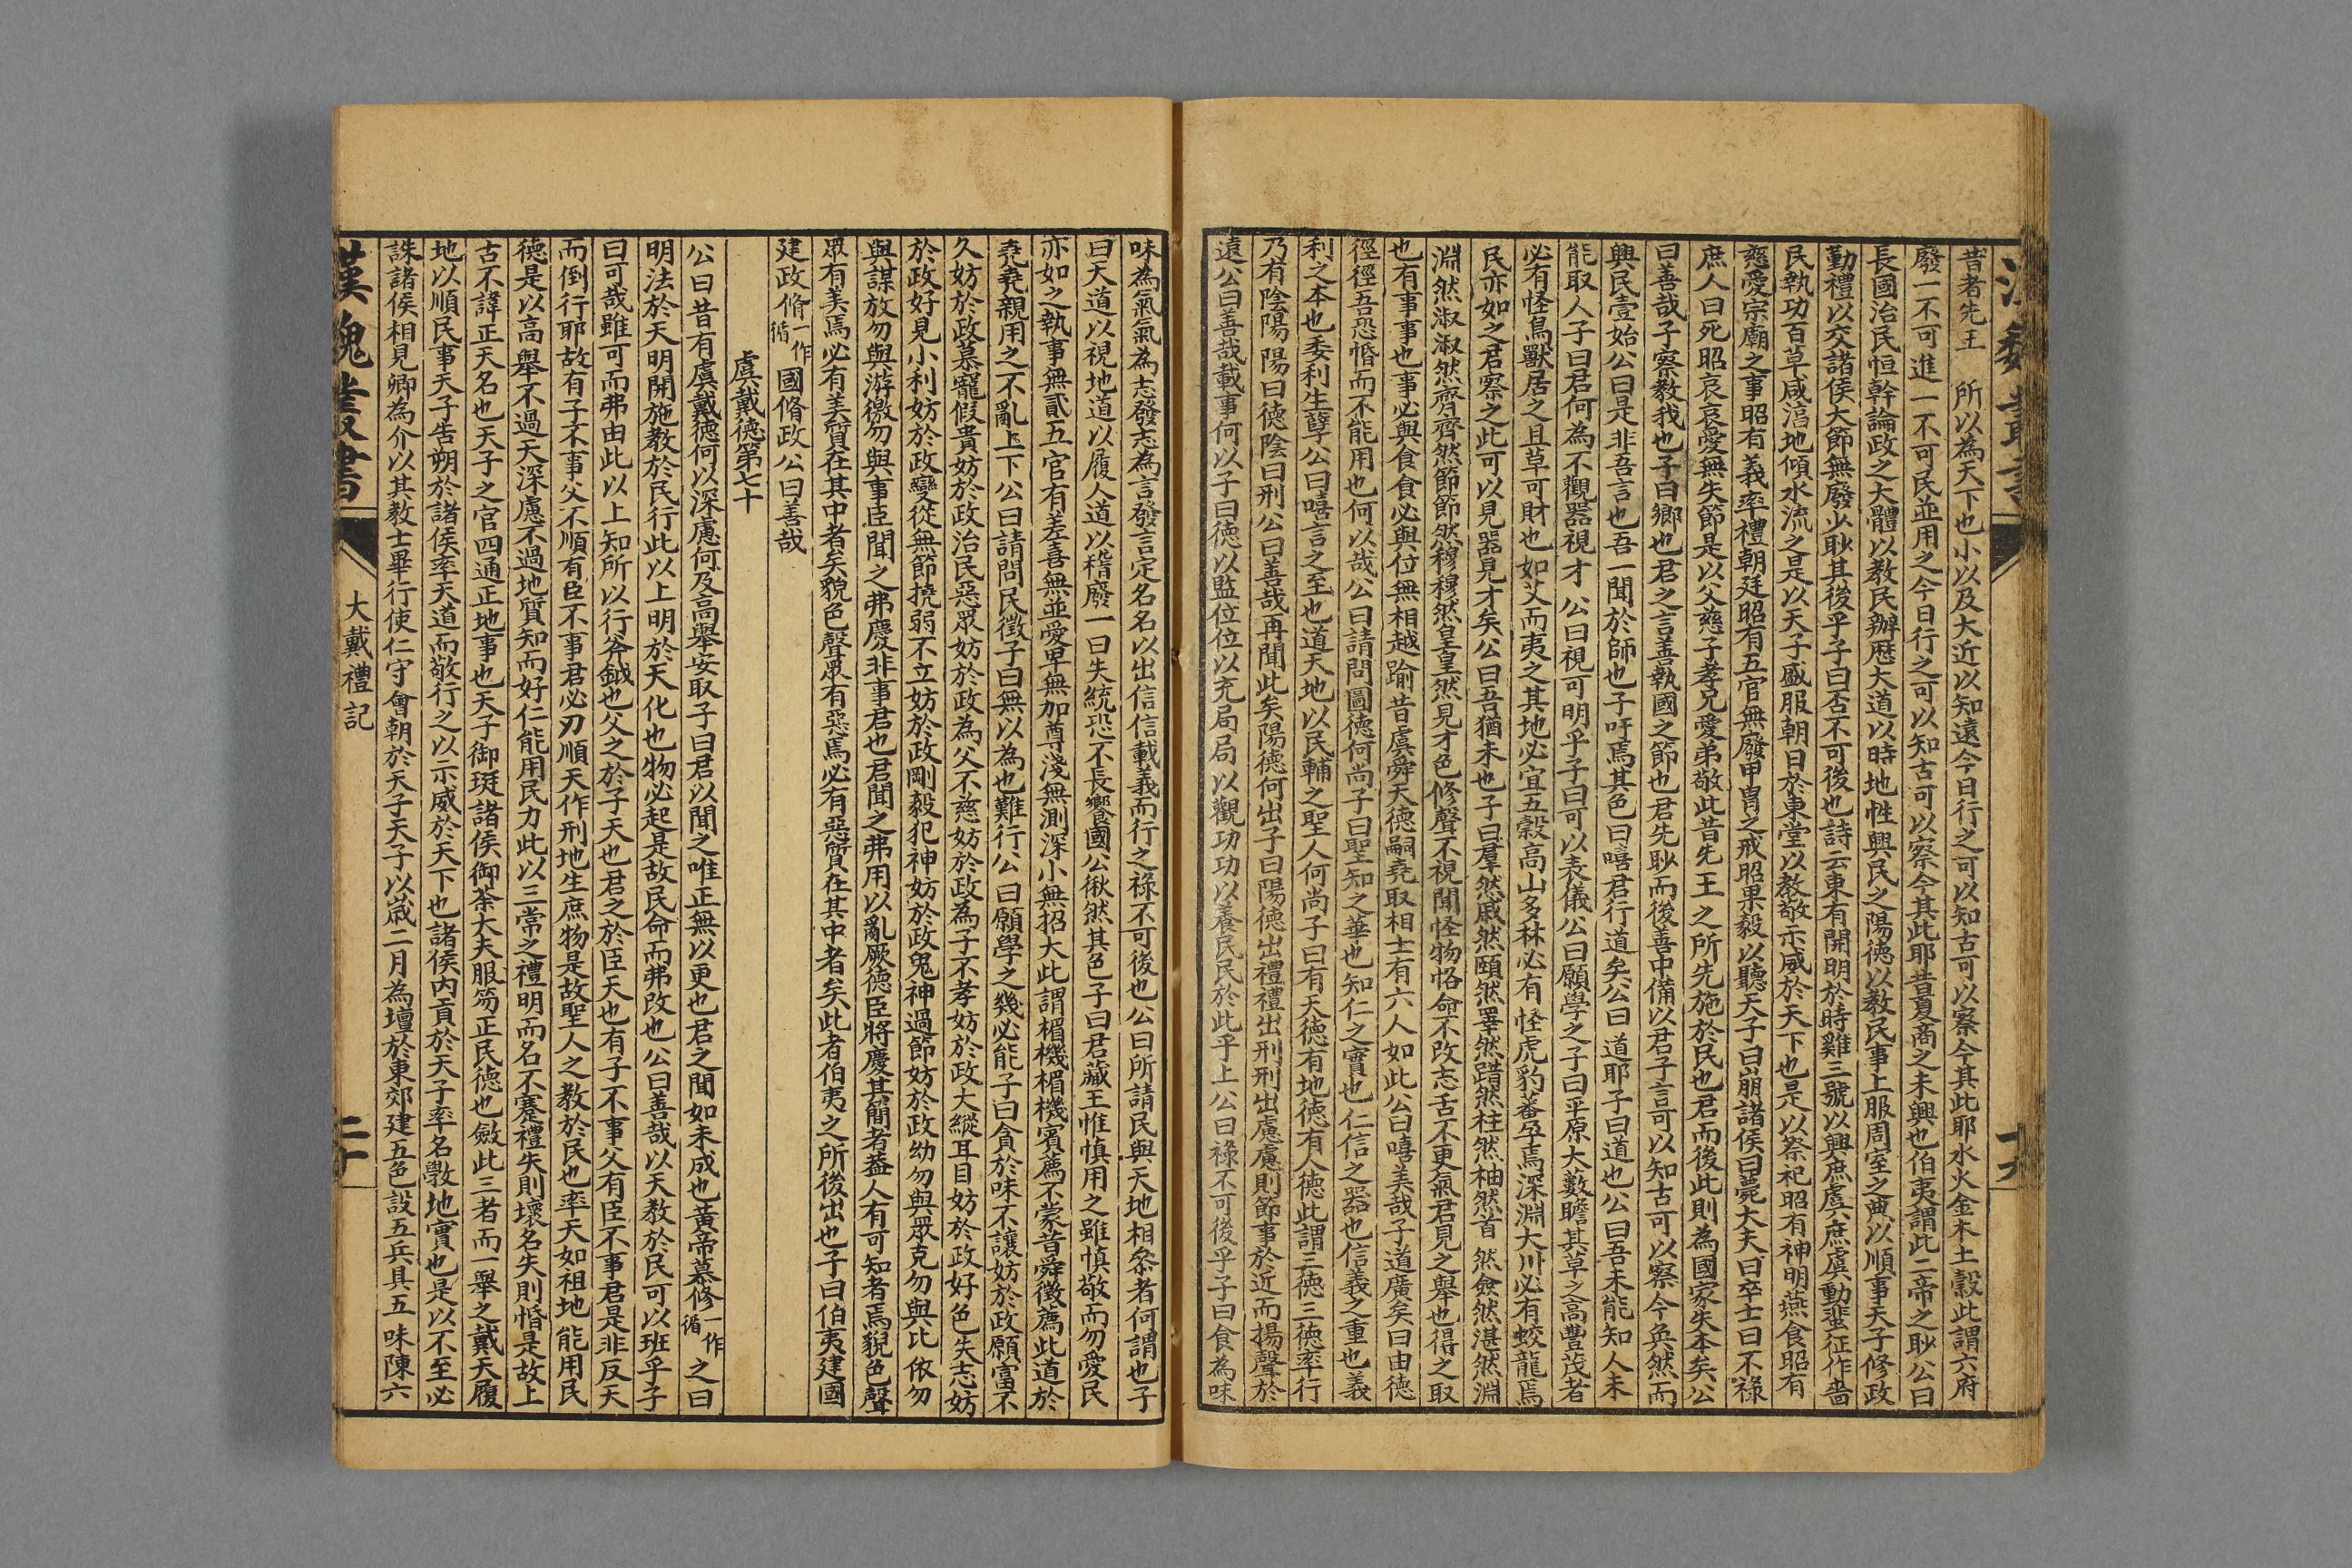 昔者先王　所以為天下也小以及大近以知遠今日行之可以知古可以察今其此耶水火金木土穀此謂六府
廢一不可進一不可民並用之今日行之可以知古可以察今其此耶昔夏商之未興也伯夷謂此二帝之眇公曰
長國治民恒幹論政之大體以教民辦歷大道以時地性興民之陽德以教民事上服周室之典以順事天子修政
勤禮以交諸侯大節無廢小眇其後乎子曰否不可後也詩云東有開明於時雞三號以興庶虞庶虞動蜚征作嗇
民執功百草咸淳地傾水流之是以天子盛服朝日於東堂以教敬示威於天下也是以祭祀昭有神明燕食昭有
慈愛宗廟之事昭有義率禮朝廷昭有五官無廢甲冑之戒昭果毅以聽天子曰崩諸侯曰薨大夫曰卒士曰不祿
庶人曰死昭哀哀愛無失節是以父慈子孝兄愛弟敬此昔先王之所先施於民也君而後此則為國家失本矣公
曰善哉子察教我也子曰鄉也君之言善執國之節也君先眇而後善中備以君子言可以知古可以察今奐然而
興民壹始公曰是非吾言也吾一聞於師也子吁焉其色曰嘻君行道矣公曰道耶子曰道也公曰吾未能知人未
能取人子曰君何為不觀器視才公曰視可明乎子曰可以表儀公曰願學之子曰平原大藪瞻其草之高豐茂者
必有怪鳥獸居之且草可財也如艾而夷之其地必宜五穀高山多林必有怪虎豹蕃孕焉深淵大川必有蛟龍焉
民亦如之君察之此可以見器見才矣公曰吾猶未也子曰羣然戚然頤然睪然踖然柱然柚然首然僉然湛然淵
淵然淑淑然齊齊然節節然穆穆然皇皇然見才色修聲不視聞怪物恪命不改志舌不更氣君見之舉也得之取
也有事事也事必與食食必與位無相越踰昔虞舜天德嗣堯取相士有六人如此公曰嘻美哉子道廣矣曰由德
徑徑吾恐惛而不能用也何以哉公曰請問圖德何尚子曰聖知之華也知仁之實也仁信之器也信義之重也義
利之本也委利生孽公曰嘻言之至也道天地以民輔之聖人何尚子曰有天德有地德有人德此謂三德三德率行
乃有陰陽陽曰德陰曰刑公曰善哉再聞此矣陽德何出子曰陽德出禮禮出刑刑出慮慮則節事於近而揚聲於
遠公曰善哉載事何以子曰德以監位位以充局局以觀功功以養民民於此乎上公曰祿不可後乎子曰食為味
味為氣氣為志發志為言發言定名名以出信信載義而行之祿不可後也公曰所謂民與天地相參者何謂也子
曰天道以視地道以履人道以稽廢一曰失統恐不長饗國公愀然其色子曰君藏玉惟慎用之雖慎敬而勿愛民
亦如之執事無貳五官有差喜無並愛卑無加尊淺無測深小無招大此謂楣機楣機賓薦不蒙昔舜徵薦此道於
堯堯親用之不亂上下公曰請問民徵子曰無以為也難行公曰願學之幾必能子曰貪於味不讓妨於政願富不
久妨於政慕寵假貴妨於政治民惡眾妨於政為父不慈妨於政為子不孝妨於政大縱耳目妨於政好色失志妨
於政好見小利妨於政變從無節撓弱不立妨於政剛毅犯神妨於政鬼神過節妨於政幼勿與眾克勿與比依勿
與謀放勿與游徼勿與事臣聞之弗慶非事君也君聞之弗用以亂厥德臣將慶其簡者蓋人有可知者焉貌色聲
眾有美焉必有美質在其中者矣貌色聲眾有惡焉必有惡質在其中者矣此者伯夷之所後出也子曰伯夷建國
建政脩一作循國脩政公曰善哉
虞戴德第七十
公曰昔有虞戴德何以深慮何及高舉安取子曰君以聞之唯正無以更也君之聞如未成也黃帝慕修一作循之曰
明法於天明開施教於民行此以上明於天化也物必起是故民命而弗改也公曰善哉以天教於民可以班乎子
曰可哉雖可而弗由此以上知所以行斧鉞也父之於子天也君之於臣天也有子不事父有臣不事君是非反天
而倒行耶故有子不事父不順有臣不事君必刃順天作刑地生庶物是故聖人之教於民也率天如祖地能用民
德是以高舉不過天深慮不過地質知而好仁能用民力此以三常之禮明而名不蹇禮失則壞名失則惛是故上
古不諱正天名也天子之官四通正地事也天子御珽諸侯御荼大夫服笏正民德也斂此三者而一舉之戴天履
地以順民事天子告朔於諸侯率天道而敬行之以示威於天下也諸侯內貢於天子率名斆地實也是以不至必
誅諸侯相見卿為介以其教士畢行使仁守會朝於天子天子以歲二月為壇於東郊建五色設五兵具五味陳六
漢魏叢書
大戴禮記
二十